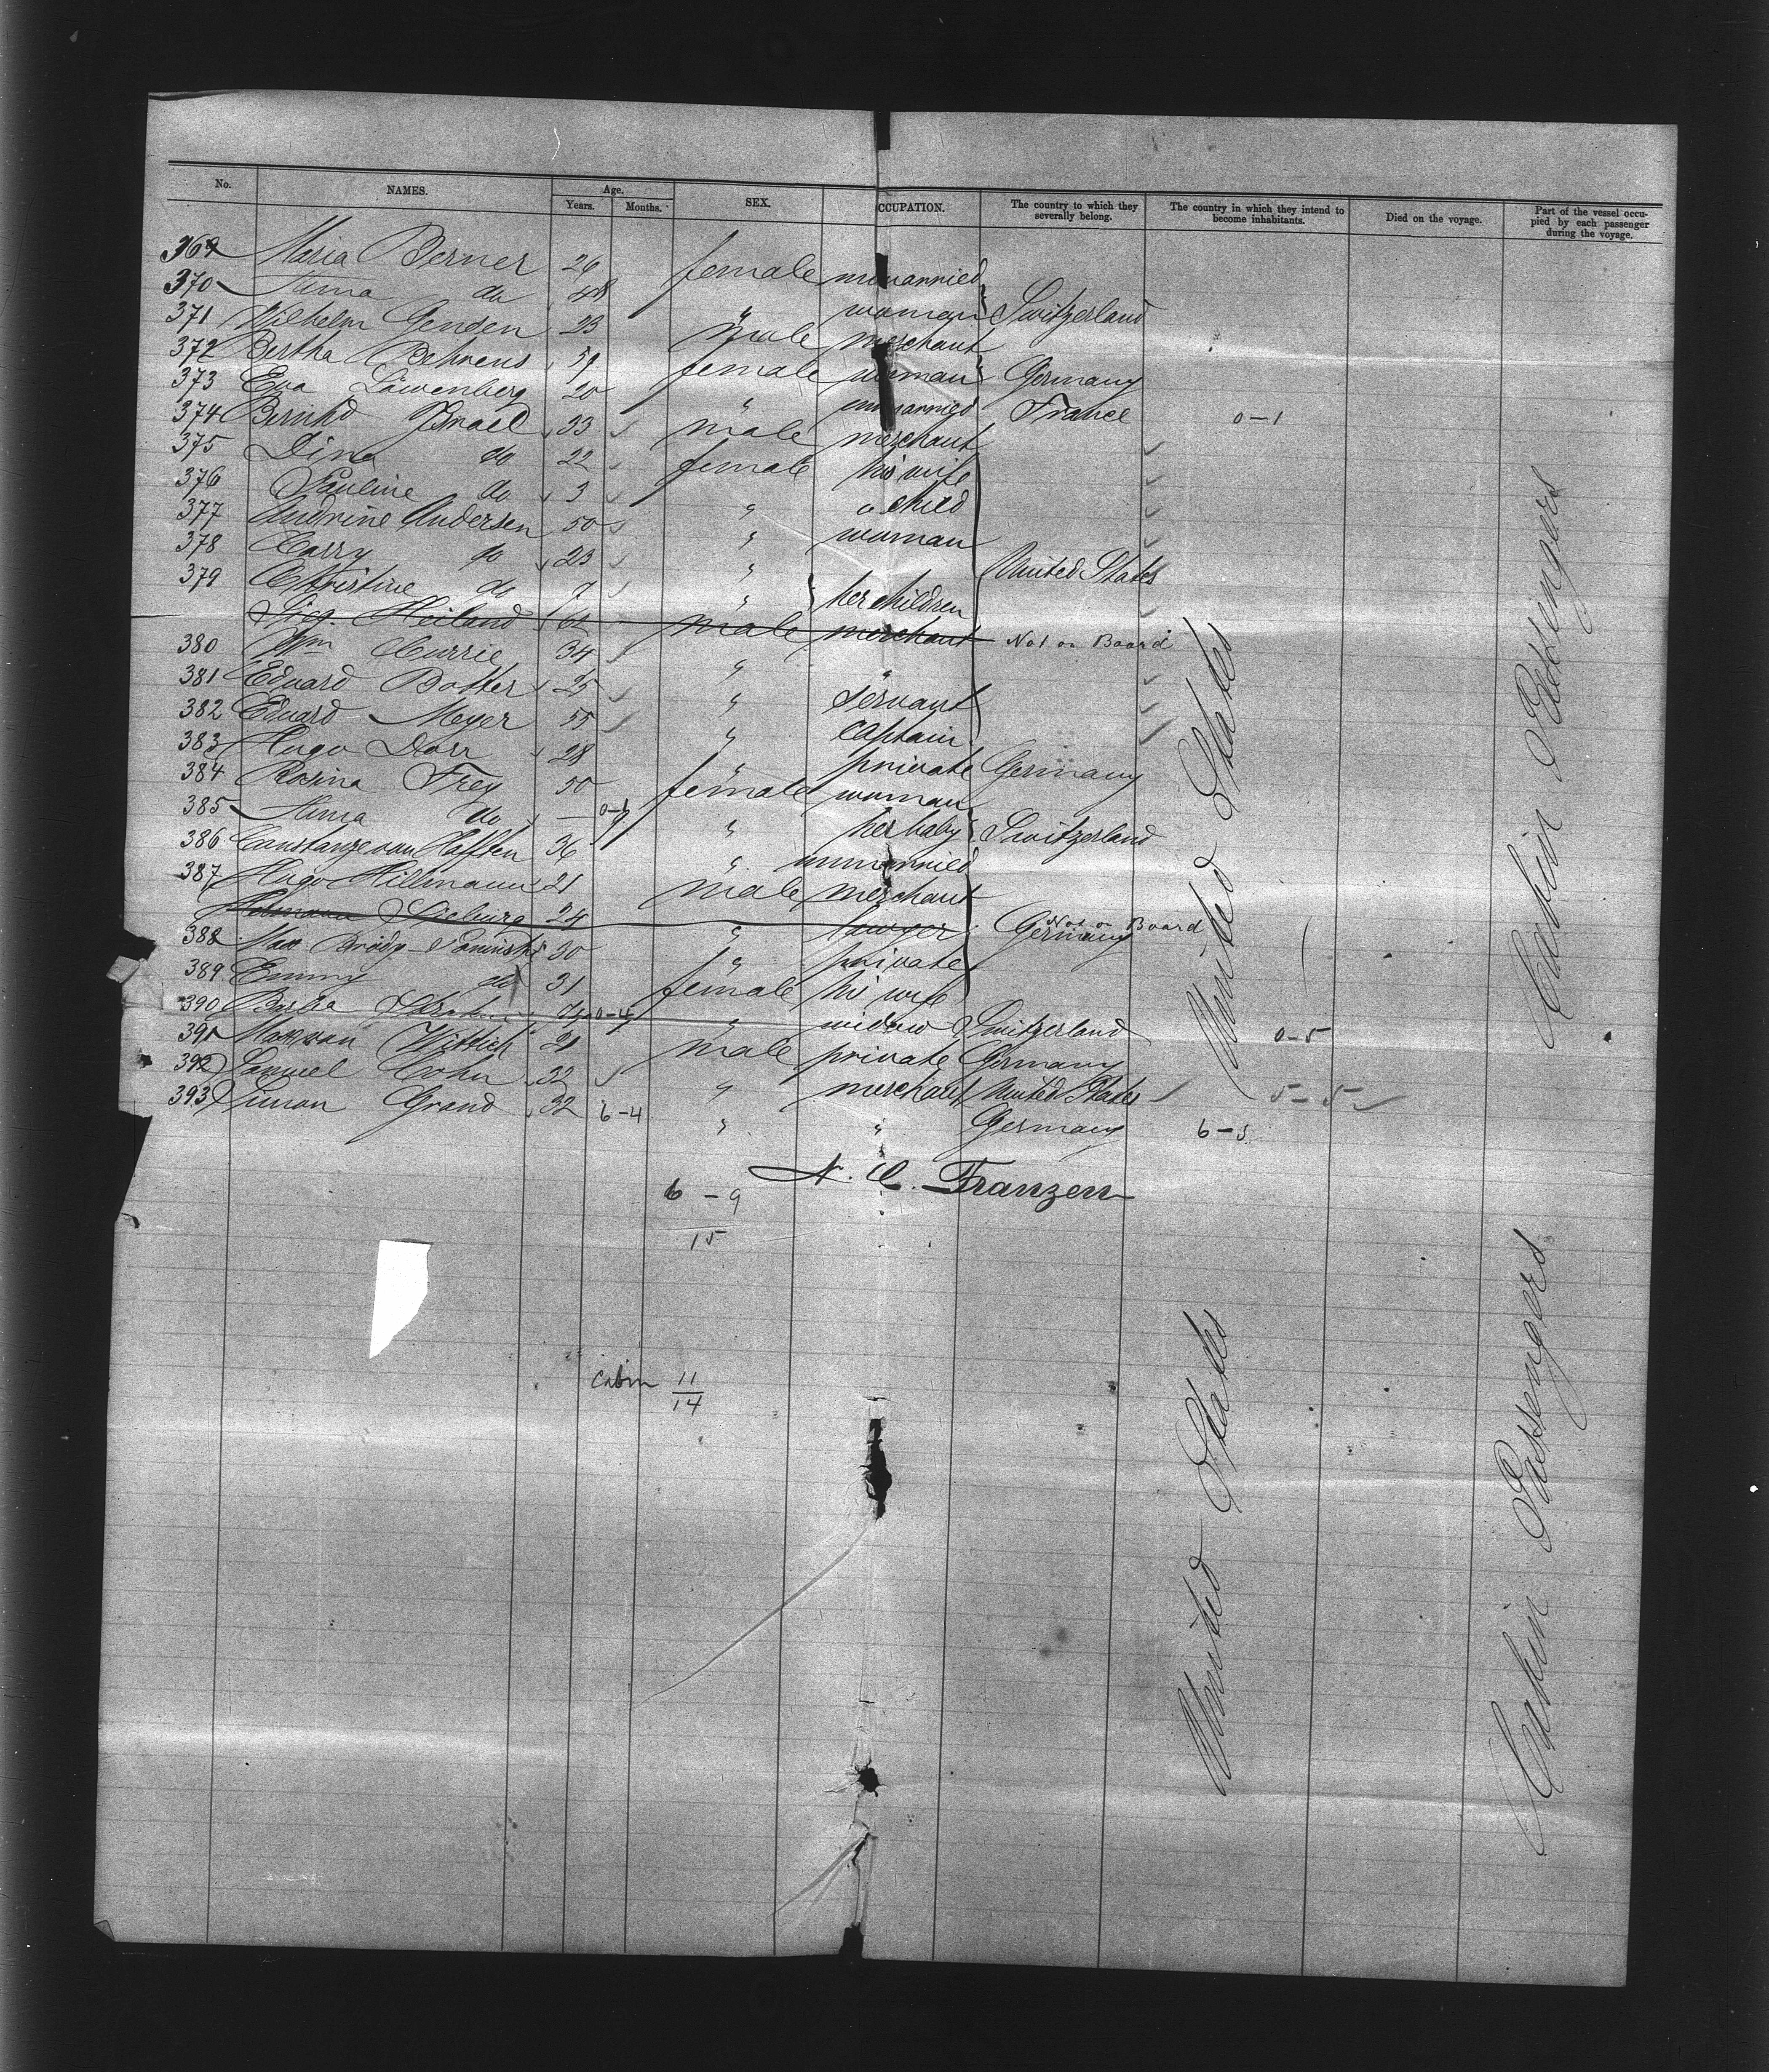 No. NAMES. Age. Years. Months. SEX. OCCUPATION. The country to which they severally belong. The country in which they intend to become inhabitants. Died on the voyage. Part of the vessel occupied by each passenger during the voyage.
369 Maria Berner 26 female unmarried
370 do 48 " woman Switzerland
371 Wilhelm Gensen 23 male merchant
372 Bertha Behrens 59 female woman Germany
373 Eva Löwenberg 20 " unmarried France 0-1
374 Israel 33 male merchant
375 Dina do 22 female his wife
376 Pauline do 3 " a child
377 Andrine Andersen 50 " woman
378 Carry do 23 " United States
379 Christine do 9 " her children
Sig. Heiland 62 male merchant Not on Board
380 Wm Currie 34 " "
381 Eduard Botter 25 " servant
382 Eduard Meyer 55 " captain
383 Hugo Dorr 28 " private Germany
384 Rosina Frey 50 female woman
385 do — 0-1 " her baby Switzerland
386 Constanze van Haften 36 " unmarried
387 Hugo Hillmann 21 male merchant
24 " lawyer Germany Not on Board
388 Max 30 " private
389 Emmy do 31 female his wife
390 0-4 " widow Switzerland
391 Max von Wittich 21 male private Germany 0-5
392 Samuel Cohn 32 " merchant United States 5-5
393 Simon Grand 32 6-4 " " Germany 6-5
N. C. Franzen
6-9
15
Cabin 11
14
United States
Cabin Passengers
United States
Cabin Passengers